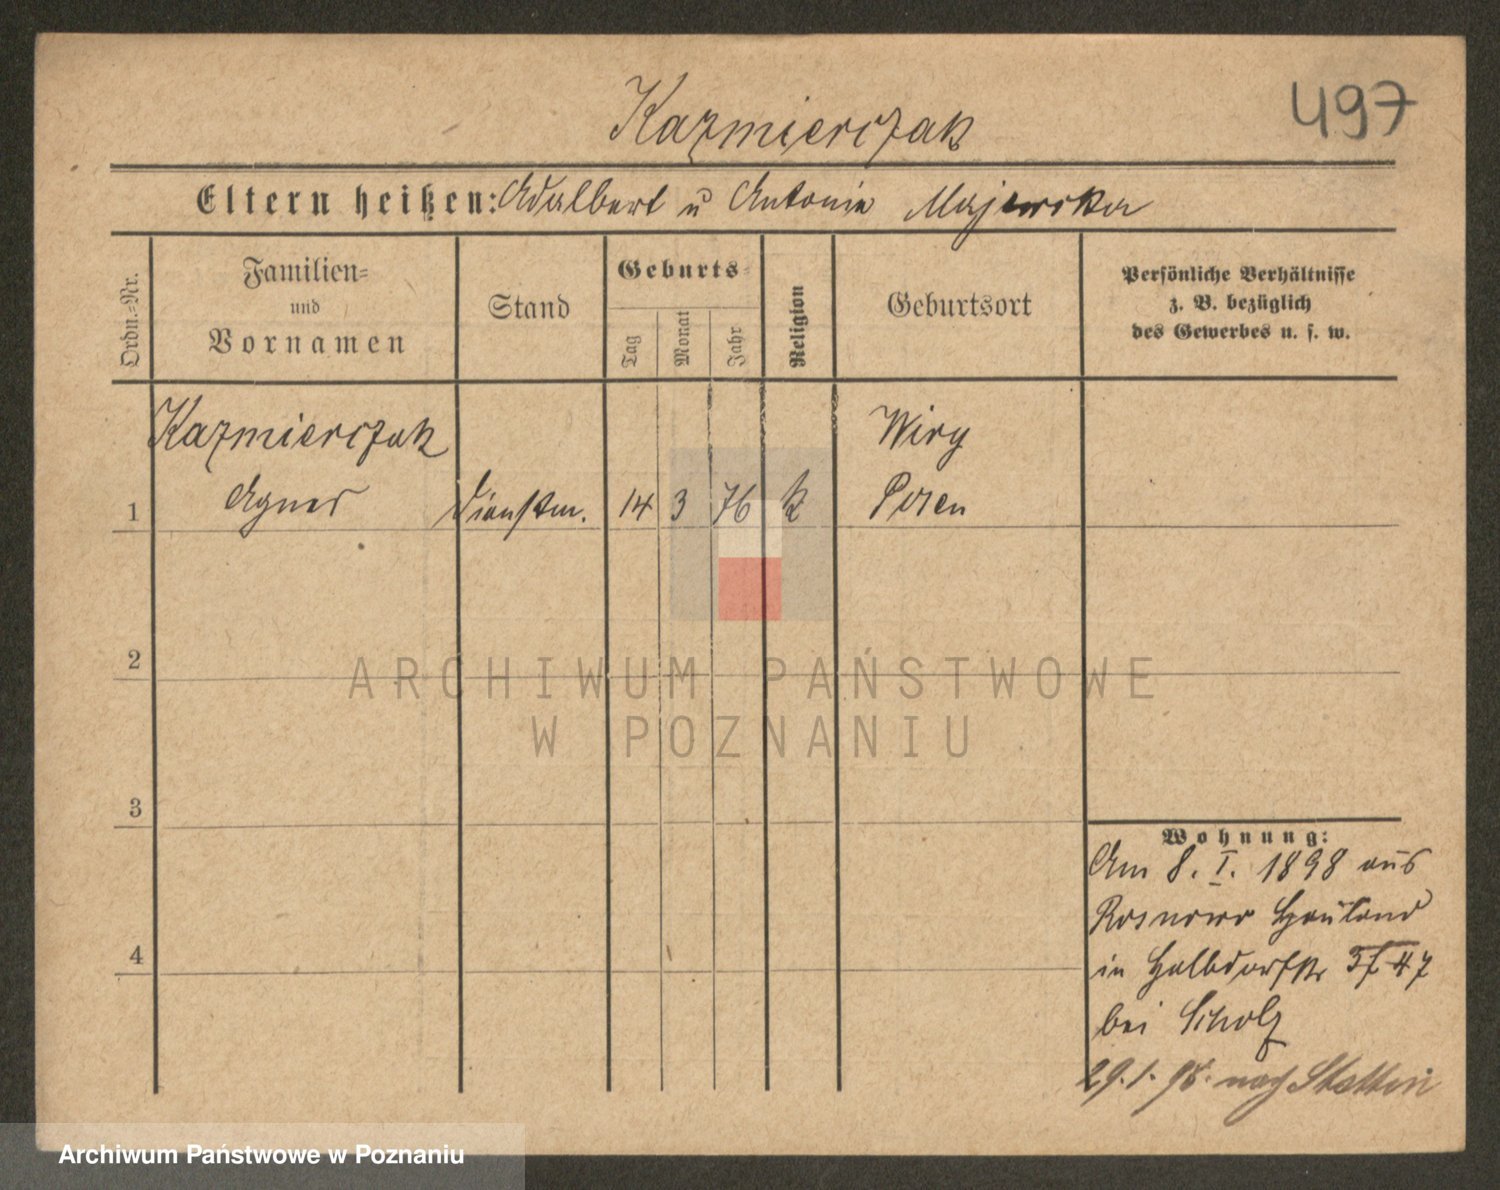 Kazmierczak
497
Eltern heißen: Adalbert u Antonie Majewska
Ordn.=Nr.
Familien=
und
Vornamen
Stand
Geburts=
Tag
Monat
Jahr
Religion
Geburtsort
Persönliche Verhältnisse
z. B. bezüglich
des Gewerbes u. s. w.
Kazmierczak
Wiry
1 Agnes Dienstm. 14 3 76 k Posen
2
ARCHIWUM PAŃSTWOWE
W POZNANIU
3
Wohnung:
Am 8. I. 1898 aus
Rosnowo Hauland
in Halbdorfstr 47
bei Scholz
4
29.1.98. nach Stettin
Archiwum Państwowe w Poznaniu